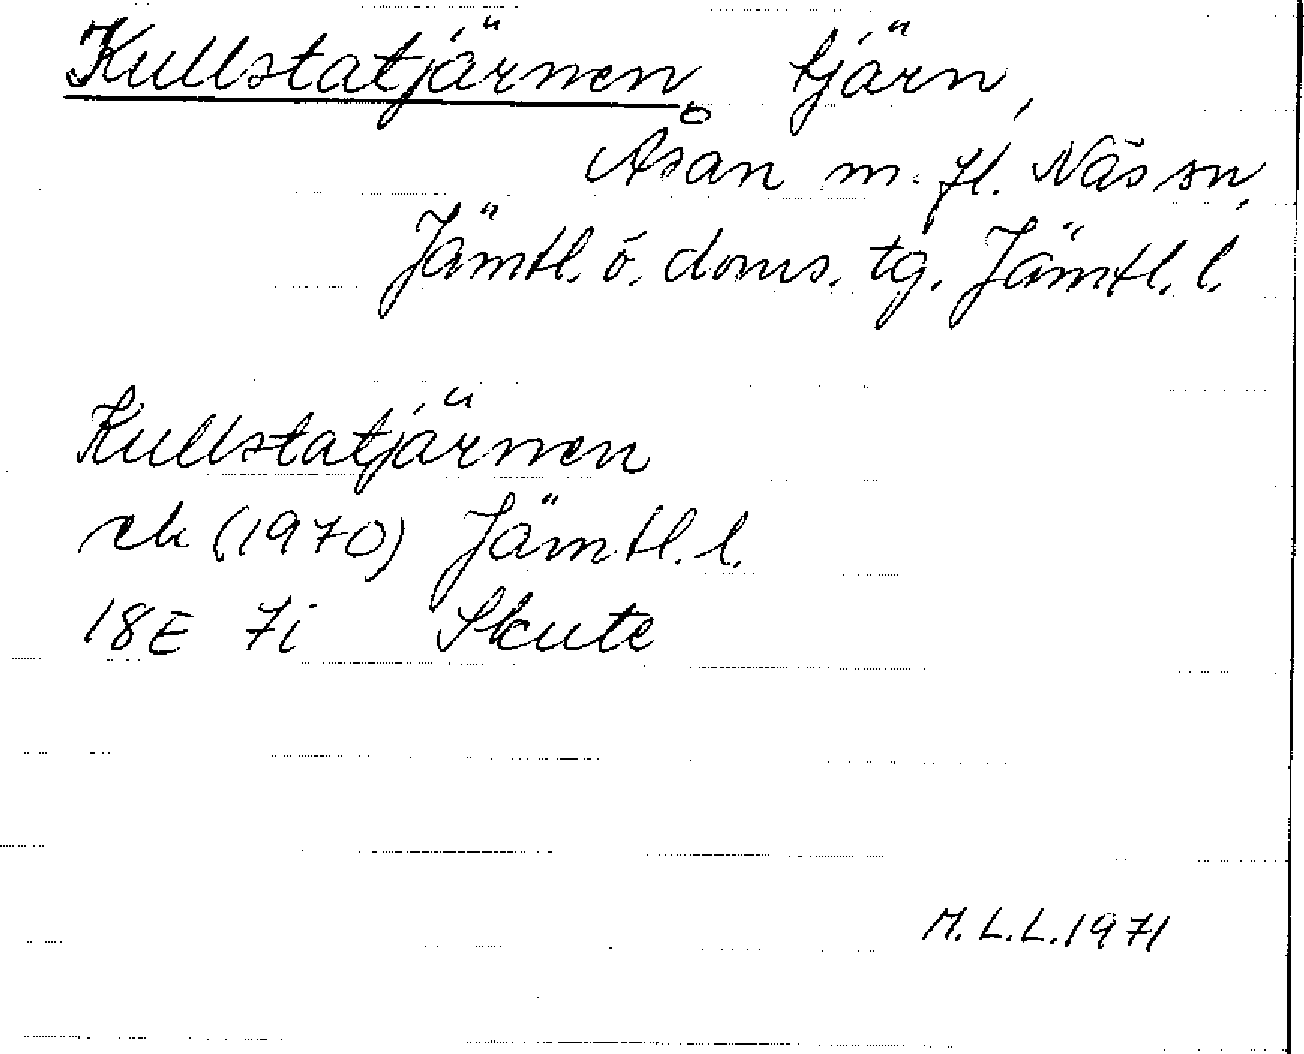 Kullstatjärnen, tjärn,
Åsan m. fl. Näs sn,
Jämtl. ö. doms. tg. Jämtl. l.
Kullstatjärnen
ek (1970) Jämtl. l.
18E 7i Skute
M.L.L. 1971